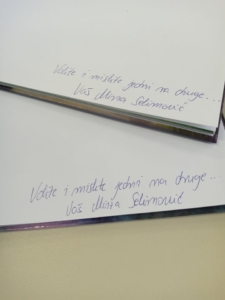 Volite i mislite jedni na druge...
Vaš Mirza Selimović
Volite i mislite jedni na druge..
Vaš Mirza Selimović